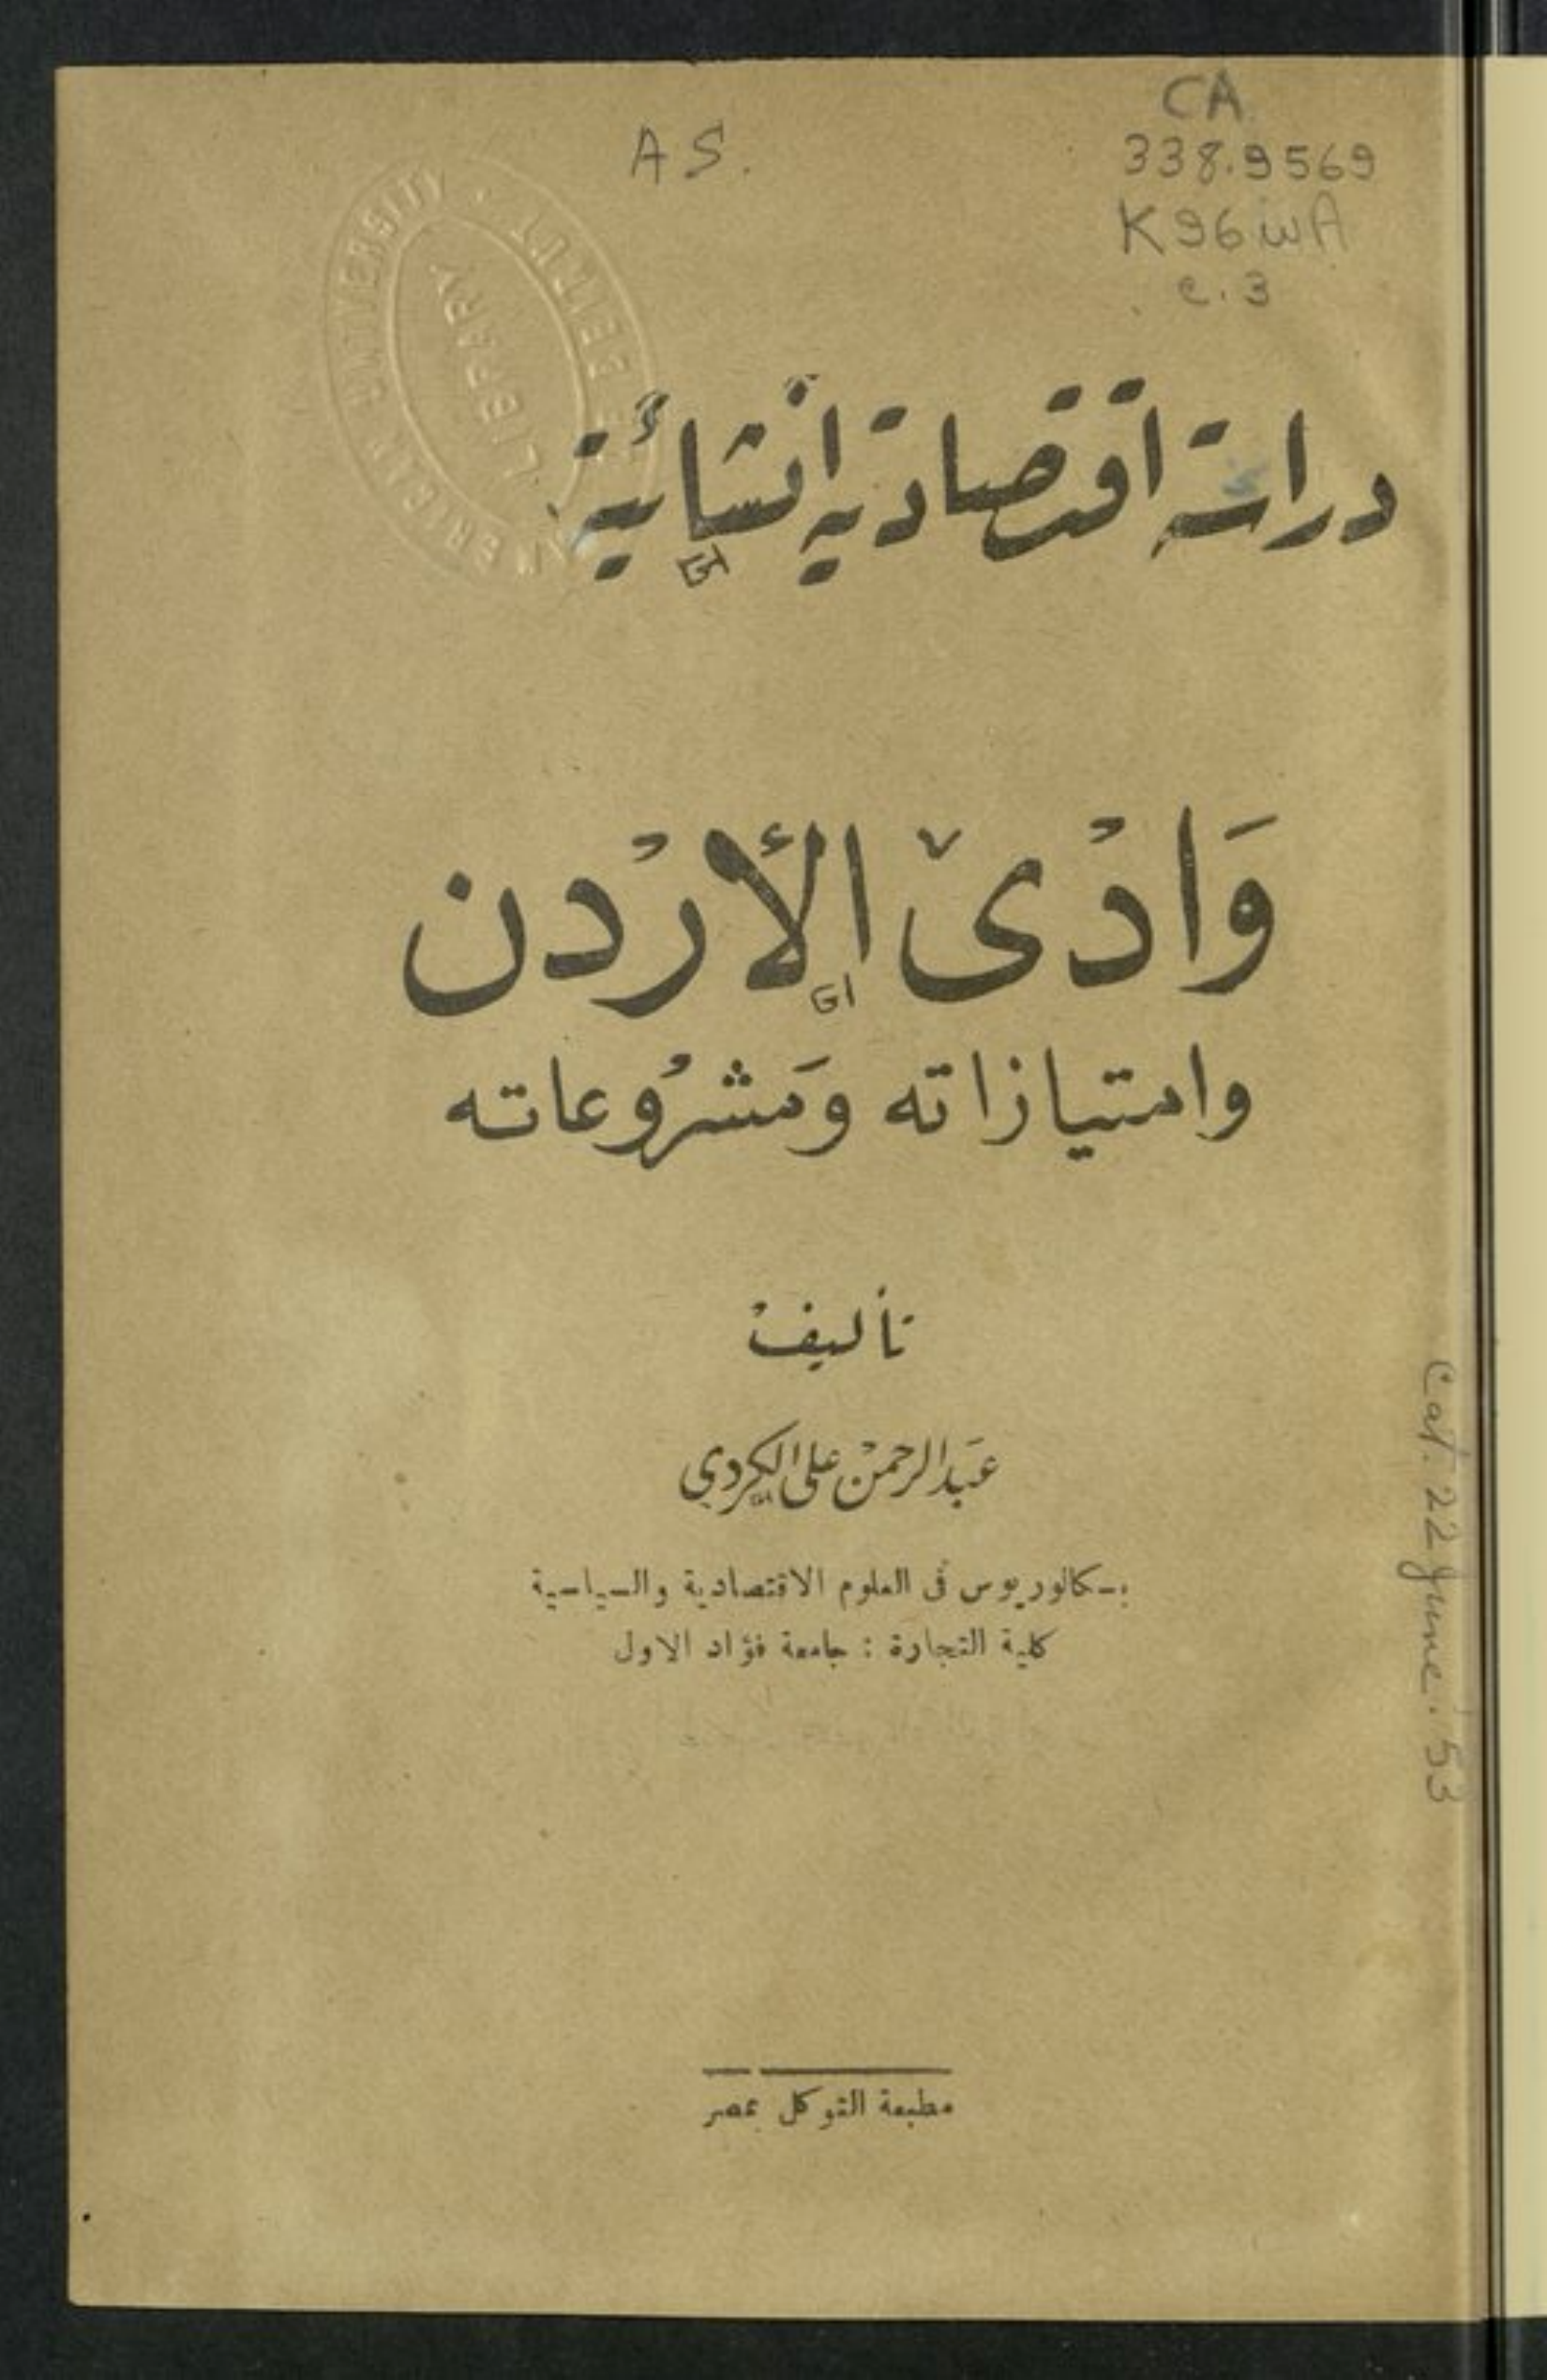 A S.
CA
338.9569
K96wA
c.3
AMERICAN UNIVERSITY · OF BEIRUT
LIBRARY
دراسة اقتصادية إنشائية
وَادْى الأرْدن
وامتيازاته وَمشرْوعاته
تأليفْ
عَبد الرحمنْ على الكردي
بـكالوريوس فى العلوم الاقتصادية والسياسية
كلية التجارة : جامعة فؤاد الاول
مطبعة التوكل بمصر
Cat. 22 June '53